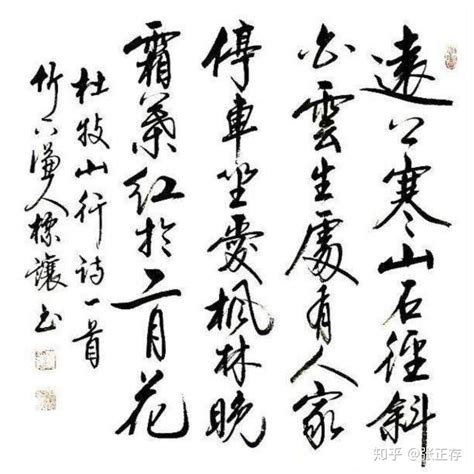 遠上寒山石徑斜
白雲生處有人家
停車坐愛楓林晚
霜葉紅於二月花
杜牧山行诗一首
竹下謙人標讓书
知乎 @张正存